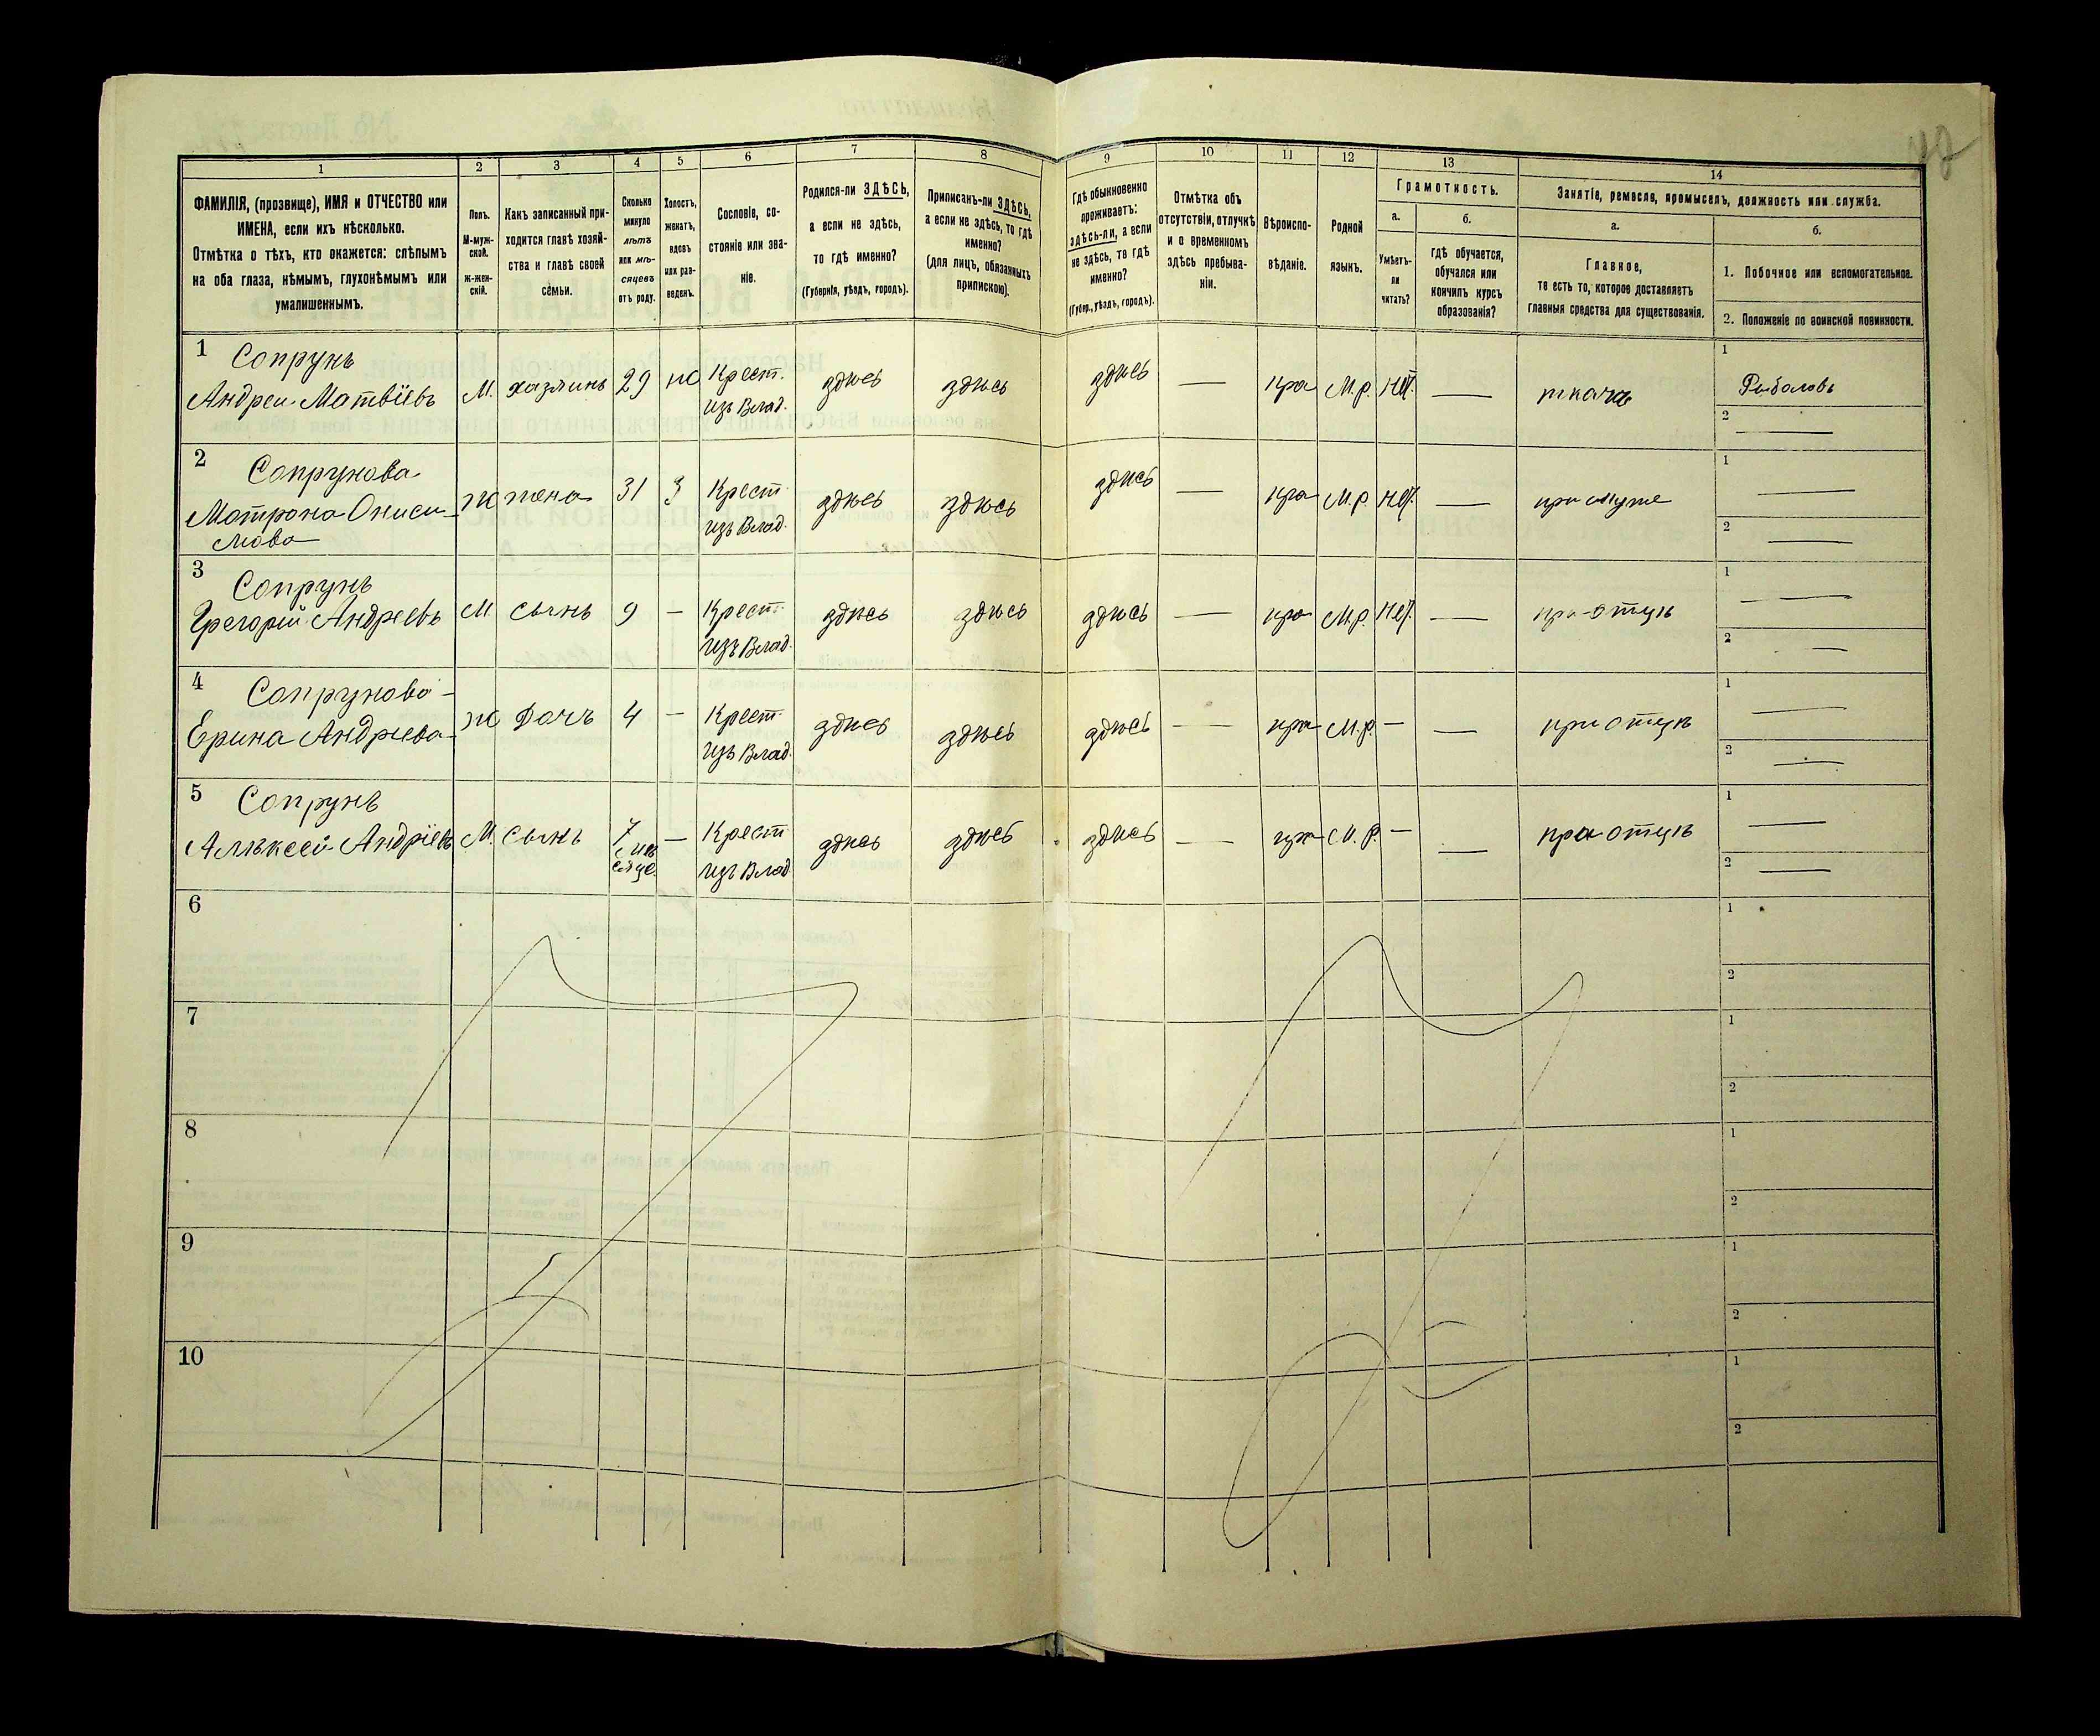 1 2 3 4 5 6 7 8 9 10 11 12 13 14
ФАМИЛІЯ, (прозвище), ИМЯ и ОТЧЕСТВО или
ИМЕНА, если ихъ нѣсколько.
Отмѣтка о тѣхъ, кто окажется: слѣпымъ
на оба глаза, нѣмымъ, глухонѣмымъ или
умалишеннымъ.
Полъ.
М-муж-
ской.
Ж-жен-
скій.
Какъ записанный при-
ходится главѣ хозяй-
ства и главѣ своей
семьи.
Сколько
минуло
лѣтъ
или мѣ-
сяцевъ
отъ роду.
Холостъ,
женатъ,
вдовъ
или раз-
веденъ.
Сословіе, со-
стояніе или зва-
ніе.
Родился-ли ЗДѢСЬ,
а если не здѣсь,
то гдѣ именно?
(Губернія, уѣздъ, городъ).
Приписанъ-ли ЗДѢСЬ,
а если не здѣсь, то гдѣ
именно?
(для лицъ, обязанныхъ
припискою).
Гдѣ обыкновенно
проживаетъ:
здѣсь-ли, а если
не здѣсь, то гдѣ
именно?
(Губер., уѣздъ, городъ).
Отмѣтка объ
отсутствіи, отлучкѣ
и о временномъ
здѣсь пребыва-
ніи.
Вѣроиспо-
вѣданіе.
Родной
языкъ.
Грамотность.
а.
Умѣетъ-
ли
читать?
б.
гдѣ обучается,
обучался или
кончилъ курсъ
образованія?
Занятіе, ремесло, промыселъ, должность или служба.
а.
Главное,
то есть то, которое доставляетъ
главныя средства для существованія.
б.
1. Побочное или вспомогательное.
2. Положеніе по воинской повинности.
1 Сопрунъ
Андреи Матвіевъ М. хазяинъ 29 Крест. здѣсь здѣсь здѣсь — пра М.р. Нет. — ткачъ
изъ Влад.
1 Рыболовъ
2 —
2 Сопрунова
Матрона Ониси- ж жена 31 З Крест здѣсь здѣсь здѣсь — пра М.р. Нет. — при муже
мова изъ Влад.
1 —
2 —
3 Сопрунъ
Грегорій Андреевъ М. сынъ 9 — Крест. здѣсь здѣсь здѣсь — пра М.р. Нет. — при отцѣ
изъ Влад.
1 —
2 —
4 Сопрунова
Ерина Андріева ж дочъ 4 — Крест. здѣсь здѣсь здѣсь — пра М.р. — — при отцѣ
изъ Влад.
1 —
2 —
5 Сопрунъ
Алѣксей Андріевъ М. сынъ 7 — Крест здѣсь здѣсь здѣсь — пра М.р. — — при отцѣ
мѣ
сяце. изъ Влад
1 —
2 —
6
1
2
7
1
2
8
1
2
9
1
2
10
1
2